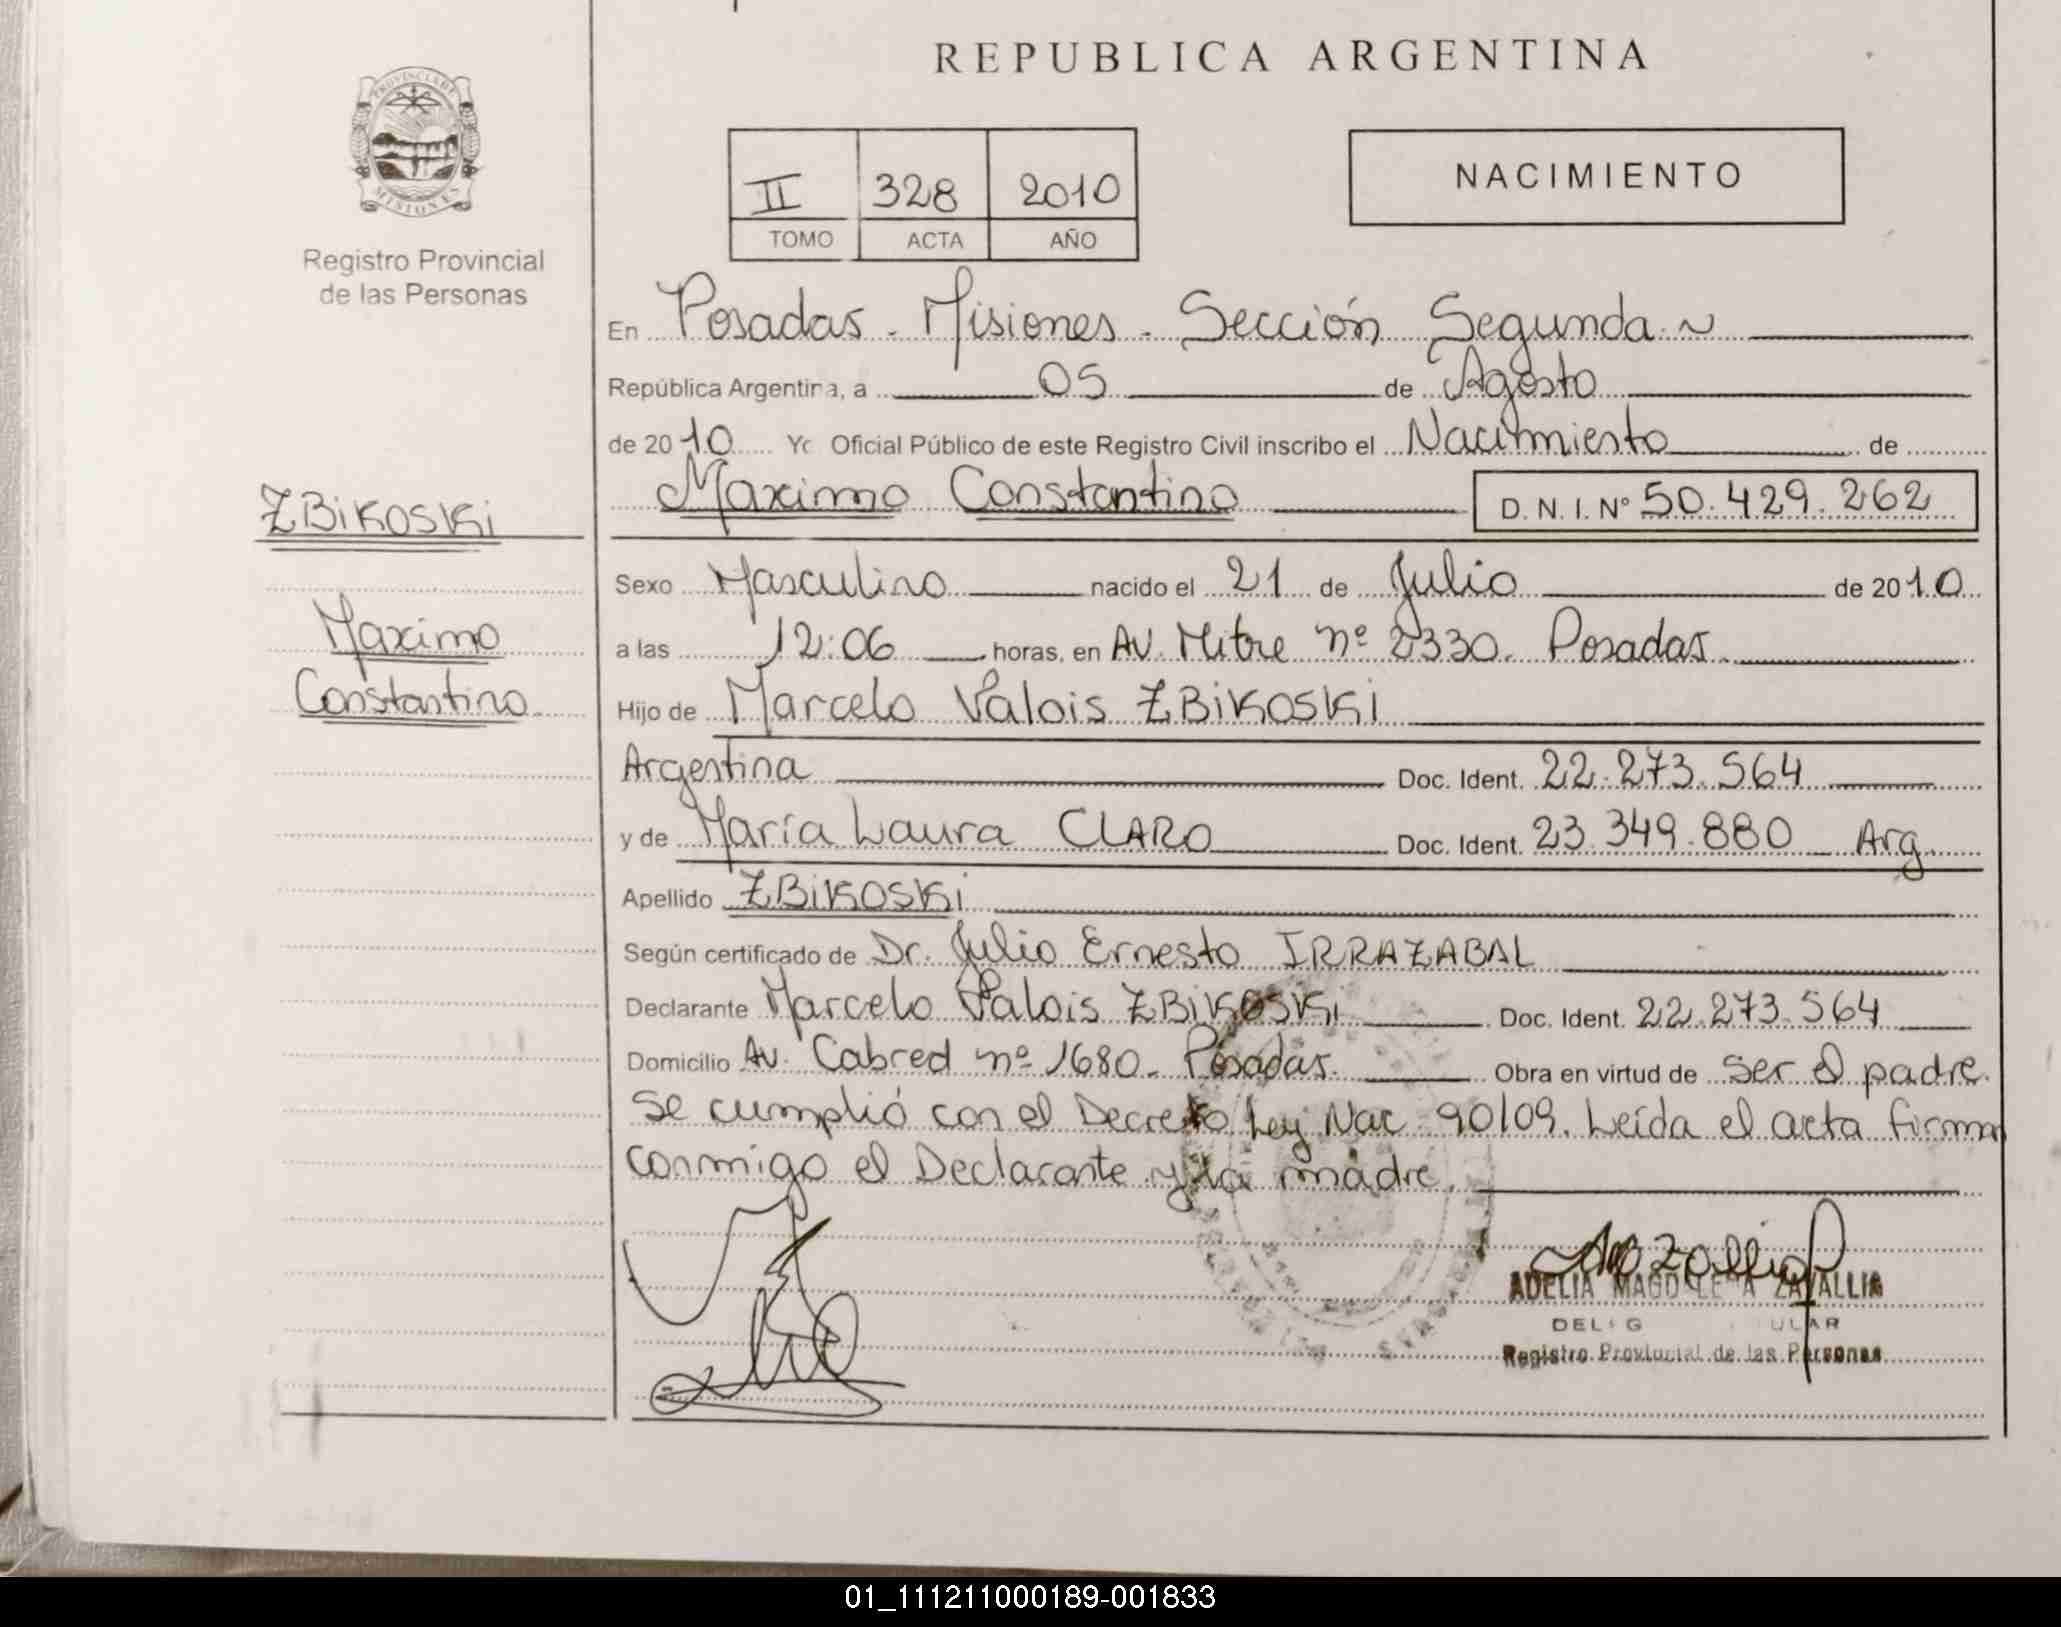 REPUBLICA ARGENTINA
PROVINCIA DE
MISIONES
Registro Provincial
de las Personas
II 328 2010
TOMO ACTA AÑO
NACIMIENTO
En Posadas - Misiones - Sección Segunda ~
República Argentina, a 05 de Agosto
de 2010 Yo Oficial Público de este Registro Civil inscribo el Nacimiento de
Maximo Constantino D. N. I. Nº 50.429.262
ZBiKOSKi
Maximo
Constantino
Sexo Masculino nacido el 21 de Julio de 2010
a las 12:06 horas, en AV. Mitre nº 2330. Posadas
Hijo de Marcelo Valois ZBiKOSKi
Argentina Doc. Ident. 22.273.564
y de María Laura CLARO Doc. Ident. 23.349.880 Arg.
Apellido ZBiKOSKi
Según certificado de Dr. Julio Ernesto IRRAZABAL
Declarante Marcelo Valois ZBiKOSKi Doc. Ident. 22.273.564
Domicilio Av. Cabred nº 1680. Posadas. Obra en virtud de ser el padre.
Se cumplió con el Decreto Ley Nac 90/09. Leída el acta firma
conmigo el Declarante y la madre.
ADELIA ZAVALLIA
Registro Provincial de las Personas
01_111211000189-001833